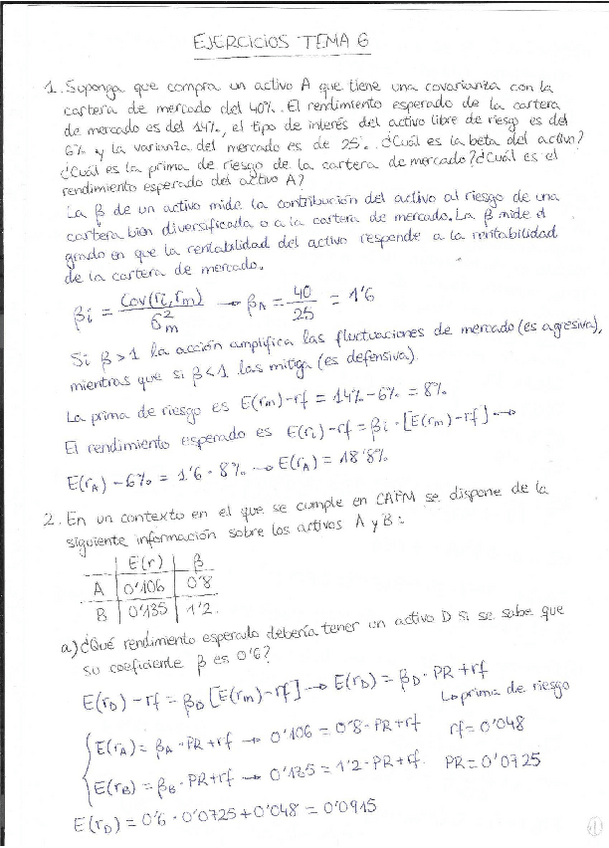 EJERCICIOS TEMA 6
1. Suponga que compra un activo A que tiene una covarianza con la
cartera de mercado del 40%. El rendimiento esperado de la cartera
de mercado es del 14%, el tipo de interés del activo libre de riesgo es del
6% y la varianza del mercado es de 25%. ¿Cuál es la beta del activo?
¿Cuál es la prima de riesgo de la cartera de mercado? ¿Cuál es el
rendimiento esperado del activo A?
La β de un activo mide la contribución del activo al riesgo de una
cartera bien diversificada o a la cartera de mercado. La β mide el
grado en que la rentabilidad del activo responde a la rentabilidad
de la cartera de mercado.
βi = Cov(ri,rm) / σ²m → βA = 40/25 = 1'6
Si β>1 la acción amplifica las fluctuaciones de mercado (es agresiva),
mientras que si β<1 las mitiga (es defensiva).
La prima de riesgo es E(rm)-rf = 14%-6% = 8%
El rendimiento esperado es E(ri)-rf = βi·[E(rm)-rf] →
E(rA)-6% = 1'6·8% → E(rA) = 18'8%
2. En un contexto en el que se cumple en CAPM se dispone de la
siguiente información sobre los activos A y B:
E(r) β
A 0'106 0'8
B 0'135 1'2
a) ¿Qué rendimiento esperado debería tener un activo D si se sabe que
su coeficiente β es 0'6?
E(rD)-rf = βD[E(rm)-rf] → E(rD) = βD·PR+rf
↳prima de riesgo
E(rA) = βA·PR+rf → 0'106 = 0'8·PR+rf rf=0'048
E(rB) = βB·PR+rf → 0'135 = 1'2·PR+rf PR=0'0725
E(rD) = 0'6·0'0725+0'048 = 0'0915
1